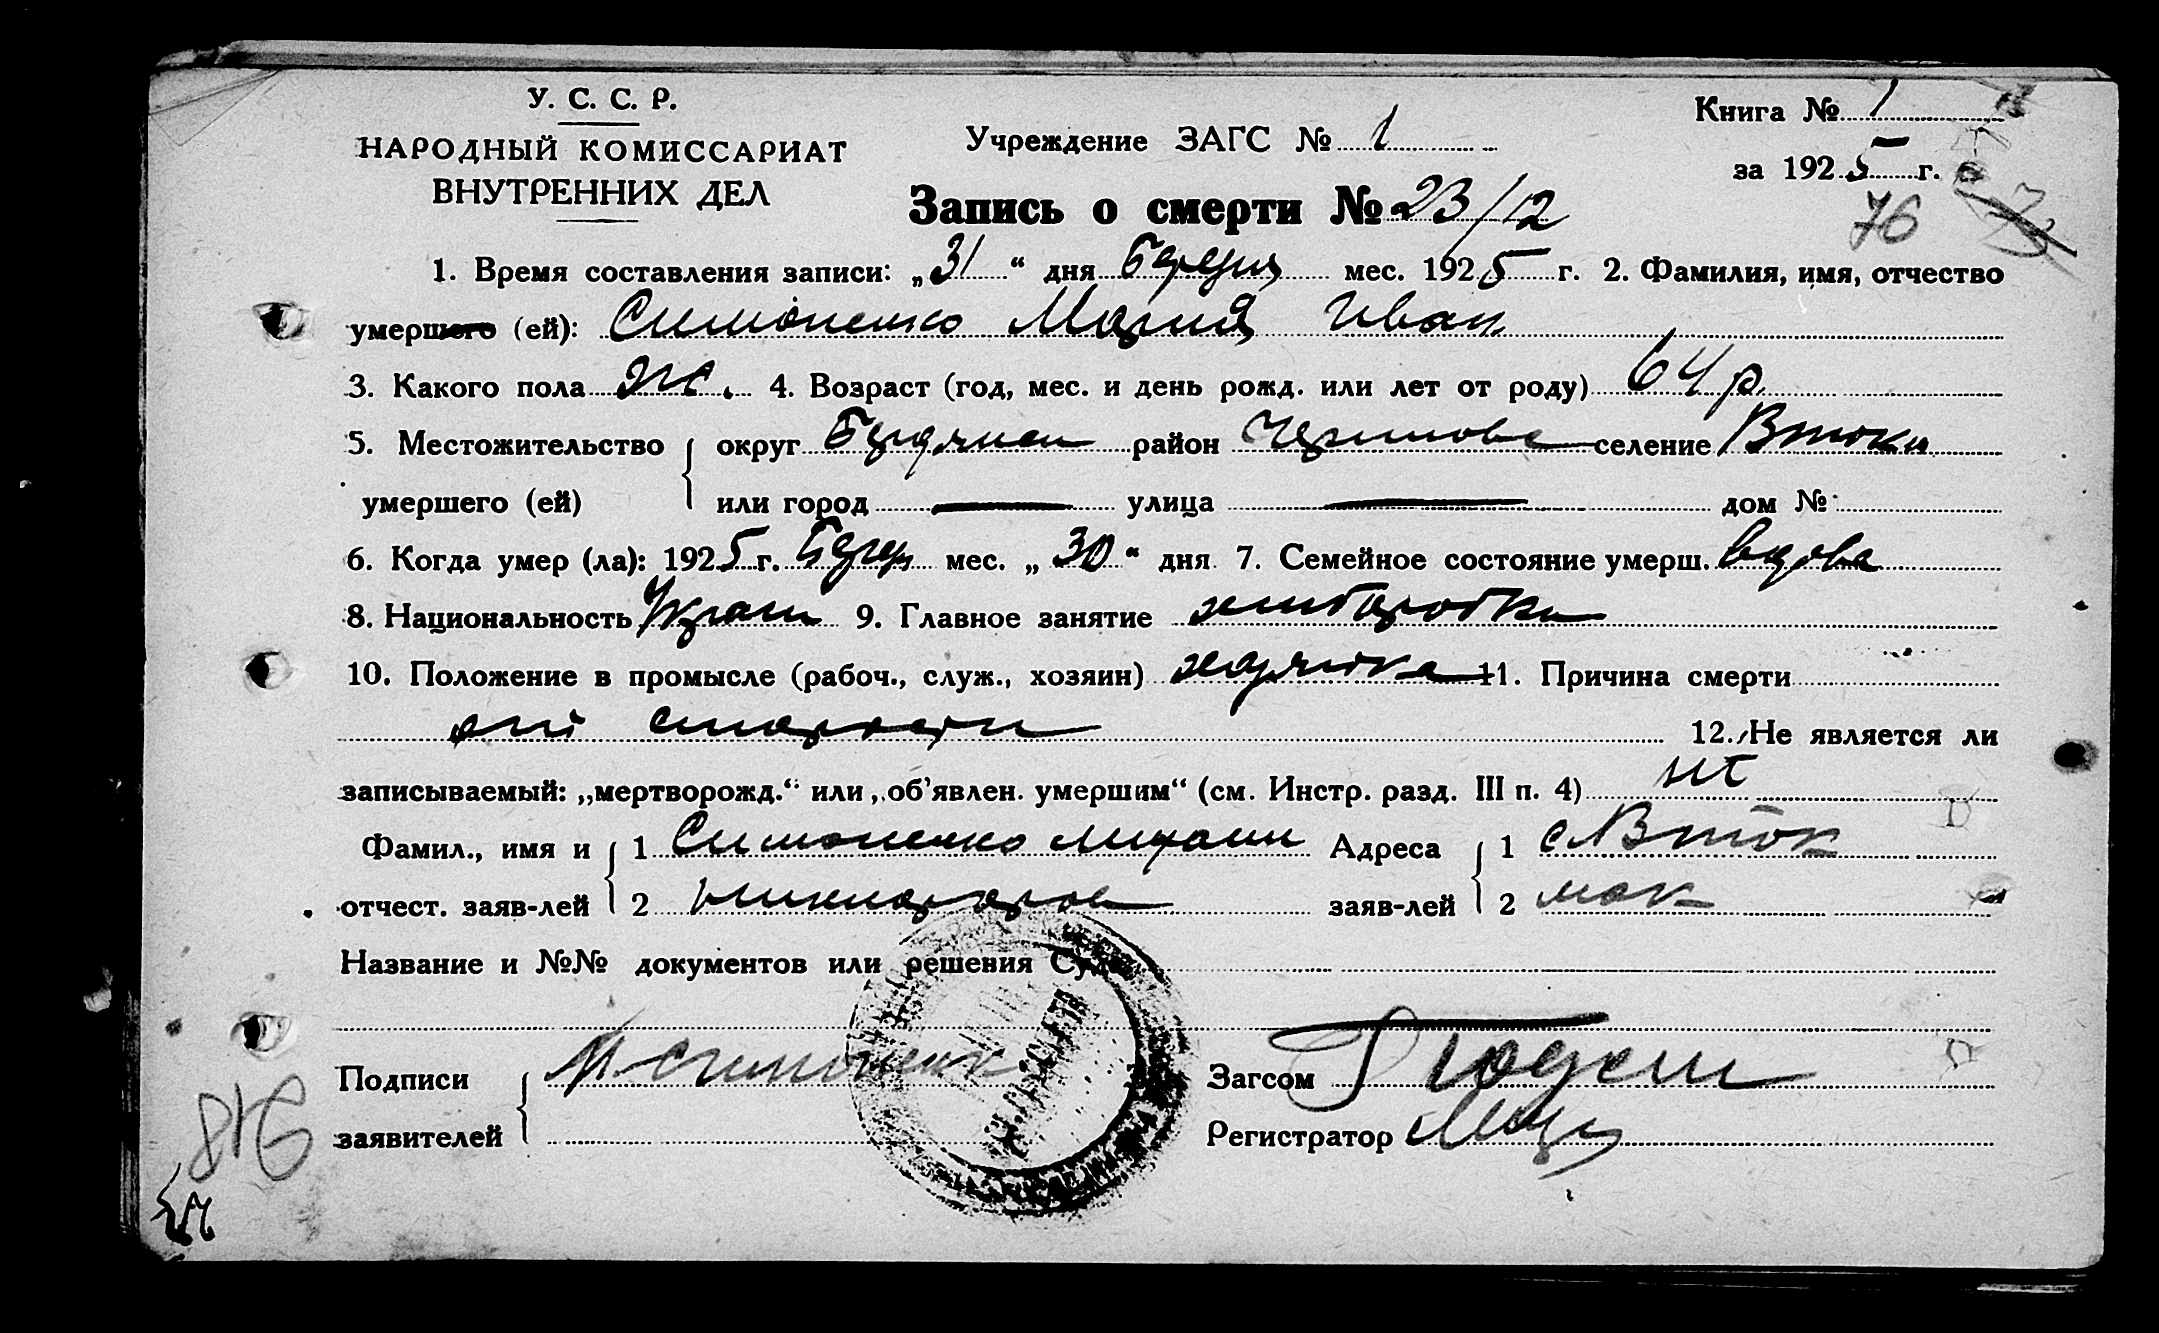 У. С. С. Р.
НАРОДНЫЙ КОМИССАРИАТ
ВНУТРЕННИХ ДЕЛ
Учреждение ЗАГС № 1
Книга № 1
за 1925 г.
76
Запись о смерти № 23/12
1. Время составления записи: „31“ дня мес. 1925 г. 2. Фамилия, имя, отчество
умершего (ей): Симоненко Мария Иван
3. Какого пола ж. 4. Возраст (год, мес. и день рожд. или лет от роду) 64 р.
5. Местожительство округ район селение Втоки
умершего (ей) или город улица дом №
6. Когда умер (ла): 1925 г. мес. „30“ дня 7. Семейное состояние умерш. вдова
8. Национальность Украин 9. Главное занятие хлиборобка
10. Положение в промысле (рабоч., служ., хозяин) 11. Причина смерти
от старости 12. Не является ли
записываемый: „мертворожд.“ или „об'явлен. умершим“ (см. Инстр. разд. III п. 4)
Фамил., имя и 1 Симоненко Адреса 1 с Вток
отчест. заяв-лей 2 заяв-лей 2
Название и №№ документов или решения Суда
Подписи Загсом
заявителей Регистратор